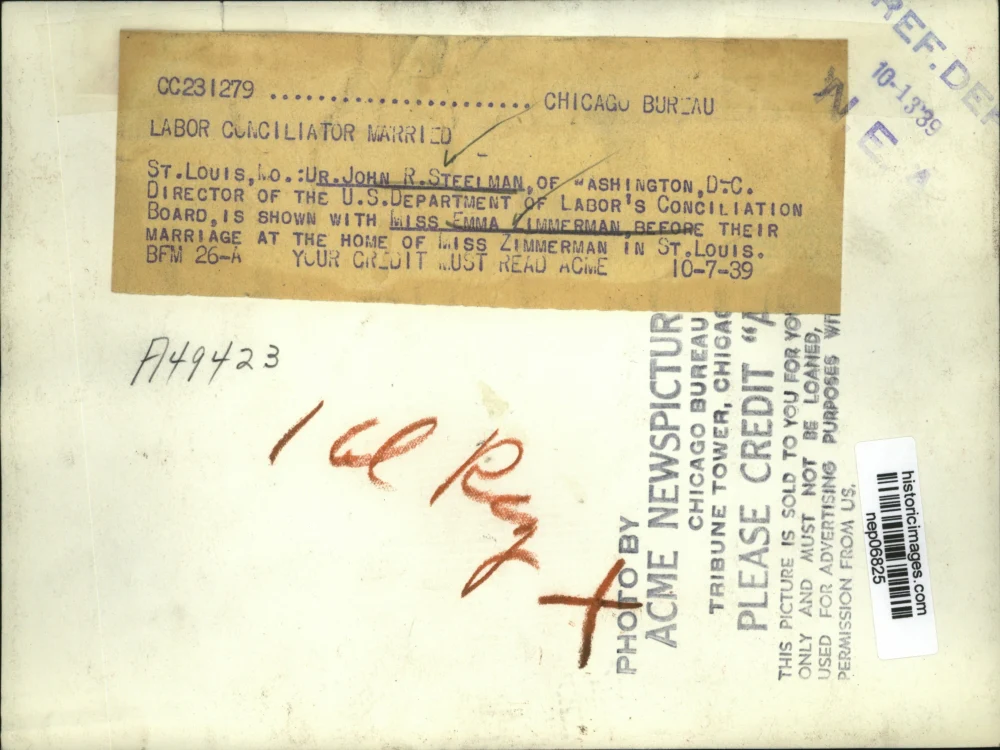 CC231279 .......................... CHICAGO BUREAU
LABOR CONCILIATOR MARRIED
ST.LOUIS,MO.:DR.JOHN R.STEELMAN,OF WASHINGTON,D.C.
DIRECTOR OF THE U.S.DEPARTMENT OF LABOR'S CONCILIATION
BOARD,IS SHOWN WITH MISS EMMA ZIMMERMAN,BEFORE THEIR
MARRIAGE AT THE HOME OF MISS ZIMMERMAN IN ST.LOUIS.
BFM 26-A YOUR CREDIT MUST READ ACME 10-7-39
REF. DEP
10-13'39
N. E. A.
A49423
1 Col
PHOTO BY
ACME NEWSPICTUR
CHICAGO BUREAU
TRIBUNE TOWER, CHICAG
PLEASE CREDIT "A
THIS PICTURE IS SOLD TO YOU FOR YO
ONLY AND MUST NOT BE LOANED,
USED FOR ADVERTISING PURPOSES WIT
PERMISSION FROM US.
historicimages.com
nep06825